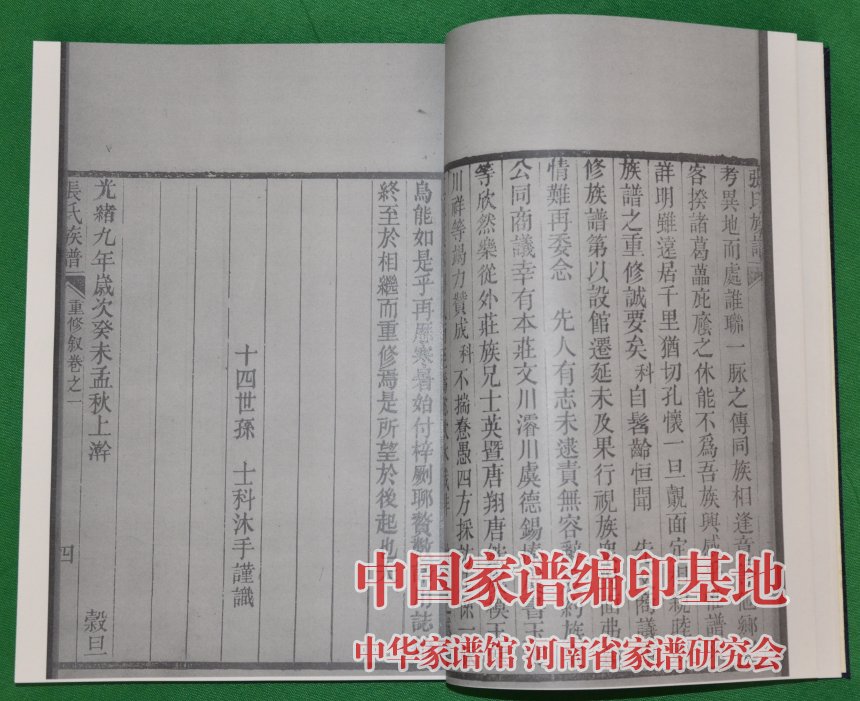 張氏族譜
考異地而處誰聯一脈之傳同族相逢
客揆諸葛藟庇廕之休能不爲吾族興
詳明雖遠居千里猶切孔懷一旦覿面定
族譜之重修誠要矣科自髫齡恒聞
修族譜第以設館遷延未及果行視族
情難再委念 先人有志未逮責無容
公同商議幸有本莊文川濬川虞德錫
等欣然樂從外莊族兄士英暨唐翔唐
川祥等竭力贊成科不揣愚四方採
烏能如是乎再歷寒暑始付梓劂聊贅數
終至於相繼而重修焉是所望於後起也
十四世孫 士科沐手謹識
光緒九年歲次癸未孟秋上澣 穀旦
長氏族譜 重修叙卷之一 四
中国家谱编印基地
中华家谱馆 河南省家谱研究会